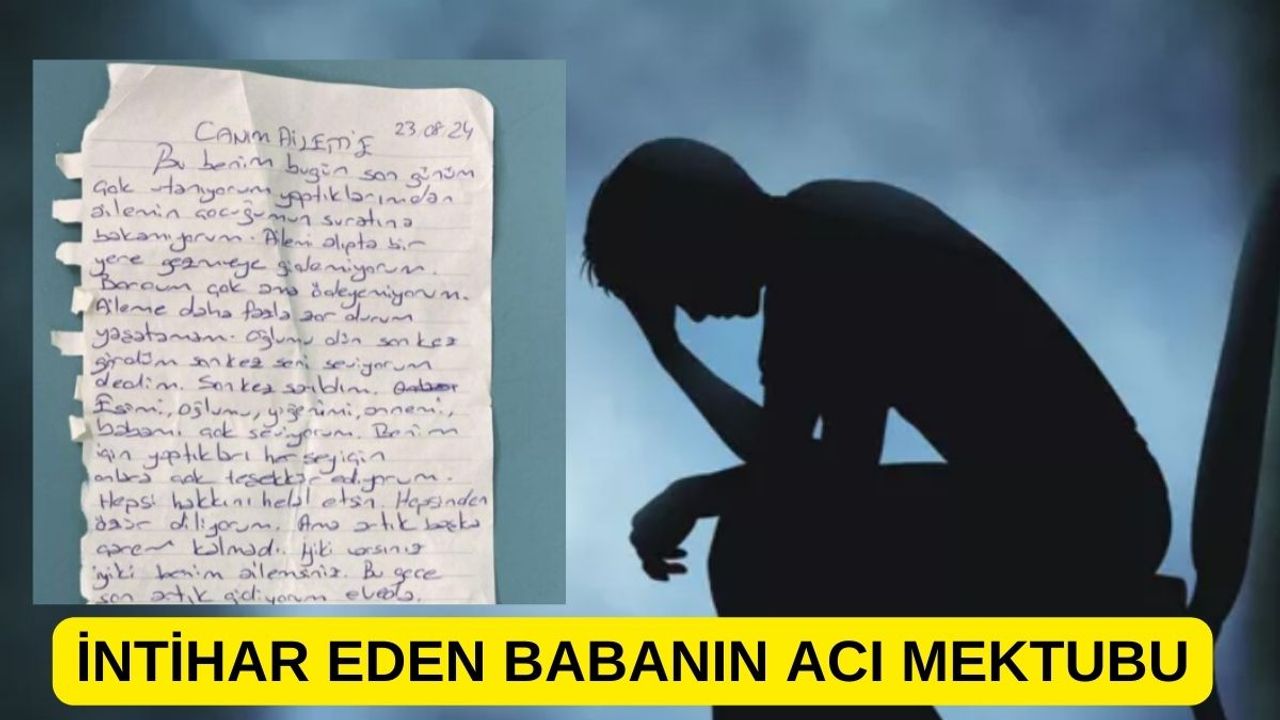 CANIM AİLEME 23.08.24
Bu benim bugün son günüm
çok utanıyorum yaptıklarımdan
ailemin çocuğumun suratına
bakamıyorum. Ailemi alıpta bir
yere gezmeye gidemiyorum.
Borcum çok ama ödeyemiyorum.
Aileme daha fazla zor durum
yaşatamam. Oğlumu dün son kez
gördüm son kez seni seviyorum
dedim. Son kez sarıldım.
Eşimi, oğlumu, yiğenimi, annemi,
babamı çok seviyorum. Benim
için yaptıkları her şey için
onlara çok teşekkür ediyorum.
Hepsi hakkını helal etsin. Hepsinden
özür diliyorum. Ama artık başka
çarem kalmadı. İyiki varsınız
iyiki benim ailemsiniz. Bu gece
son artık gidiyorum elveda.
İNTİHAR EDEN BABANIN ACI MEKTUBU